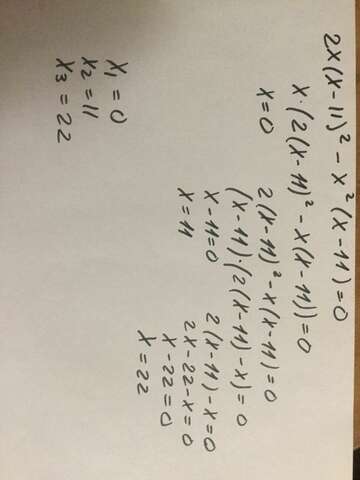 2x(x-11)² - x²(x-11) = 0
x·(2(x-11)² - x(x-11)) = 0
x=0
2(x-11)² - x(x-11) = 0
(x-11)·(2(x-11)-x) = 0
x-11=0
x=11
2(x-11)-x=0
2x-22-x=0
x-22=0
x=22
x₁ = 0
x₂ = 11
x₃ = 22